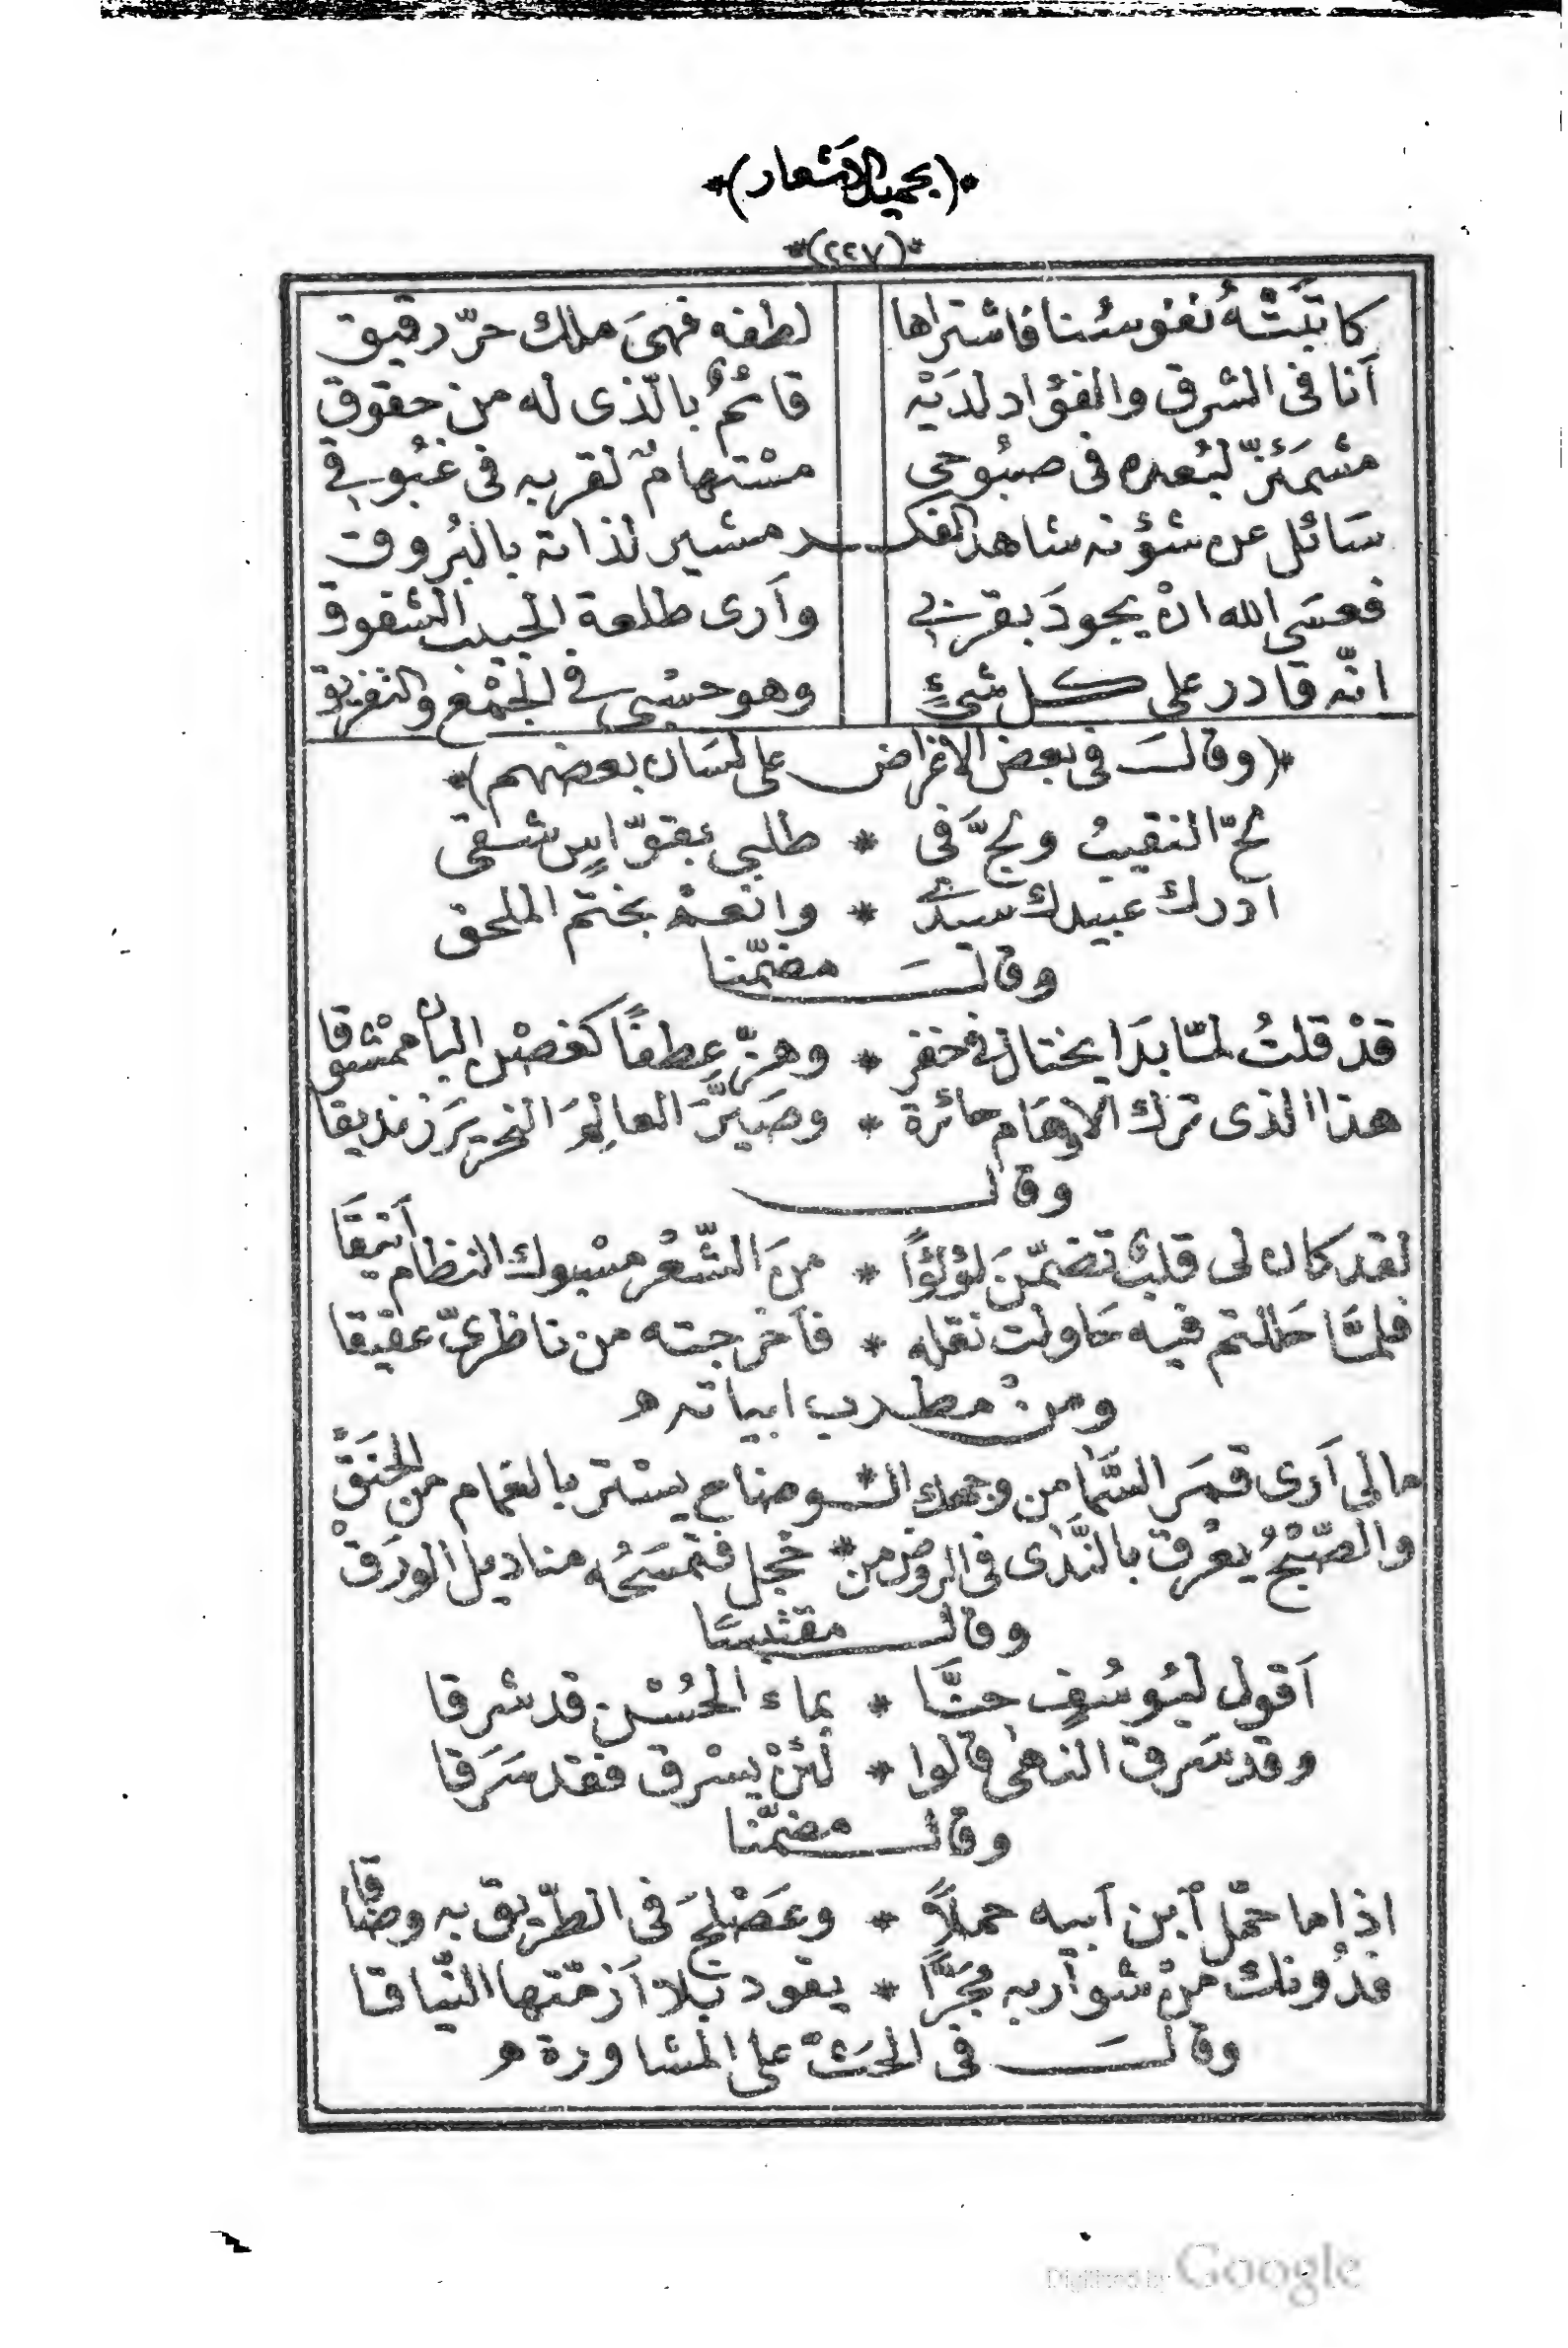 *(بجميل الأشعار)*
*(٢٤٧)*
كاتَبَتْهُ نفوسُنا فاشتراها لطفه فهىَ ملك حرّ رقيق
أنا فى الشرق والفؤاد لديْه قائمٌ بالّذى له من حقوق
مشمَئزّ لبُعده فى صبُوحى مستهامٌ لقربه فى غبُوقى
سَائل عن شؤنه شاهد الفكـــر مشير لذاته بالبُروق
فعسَى الله ان يجودَ بقربى وأرى طلعة الحبيب الشقوق
انّه قادر على كل شئٍ وهو حسْبى فى الجمْع والتفريق
*(وقالَ فى بعض الاغراض على لسان بعضهم)*
لجّ النقيبُ ولجَّ فى * طلبى بقوّاسٍ شقى
أدرك عبيدك سيدى * وانعم بختم الملحق
وقالَ مضمّنا
قدْ قلتُ لمّا بدَا يختال فى خفر * وهزّ عِطفاً كغصْن البان ممْشوقا
هذا الذى ترك الاوهَام حائرة * وصَيَّرَ العالِمَ النحريرَ زنديقا
وقال
لقد كان لى قلبٌ تضمّنَ لؤلؤاً * منَ الشّعْر مسْبوك النظام أنيقَا
فلمَّا حَللتم فيه حَاولت نقله * فأخرجته من ناظرىّ عقيقا
ومن مطرب ابياته
مالى أرى قمَر السَّما من وجهك الـ * ـوضاح يستتر بالغمام من الحنَقْ
والصّبْحُ يغرق بالنَّدى فى الروض من * خجل فتمسَحُه مناديل الورَقْ
وقال مقتبسًا
أقول ليُوسُفٍ حتَّا * بماء الحُسْن قد شرقا
وقد سَرق النهى قالوا * لئنْ يسْرق فقد سَرَقا
وقال مضمّنا
اذا ما حمّل أبن أبيه حملاً * وعَضْلجَ فى الطّريق به وضاقا
فدُونك منْ شوأربه مجَرًّا * يقود بلا أزمّتها النّياقا
وقالَ فى الحَثّ على المشاورة
Digitized by Google